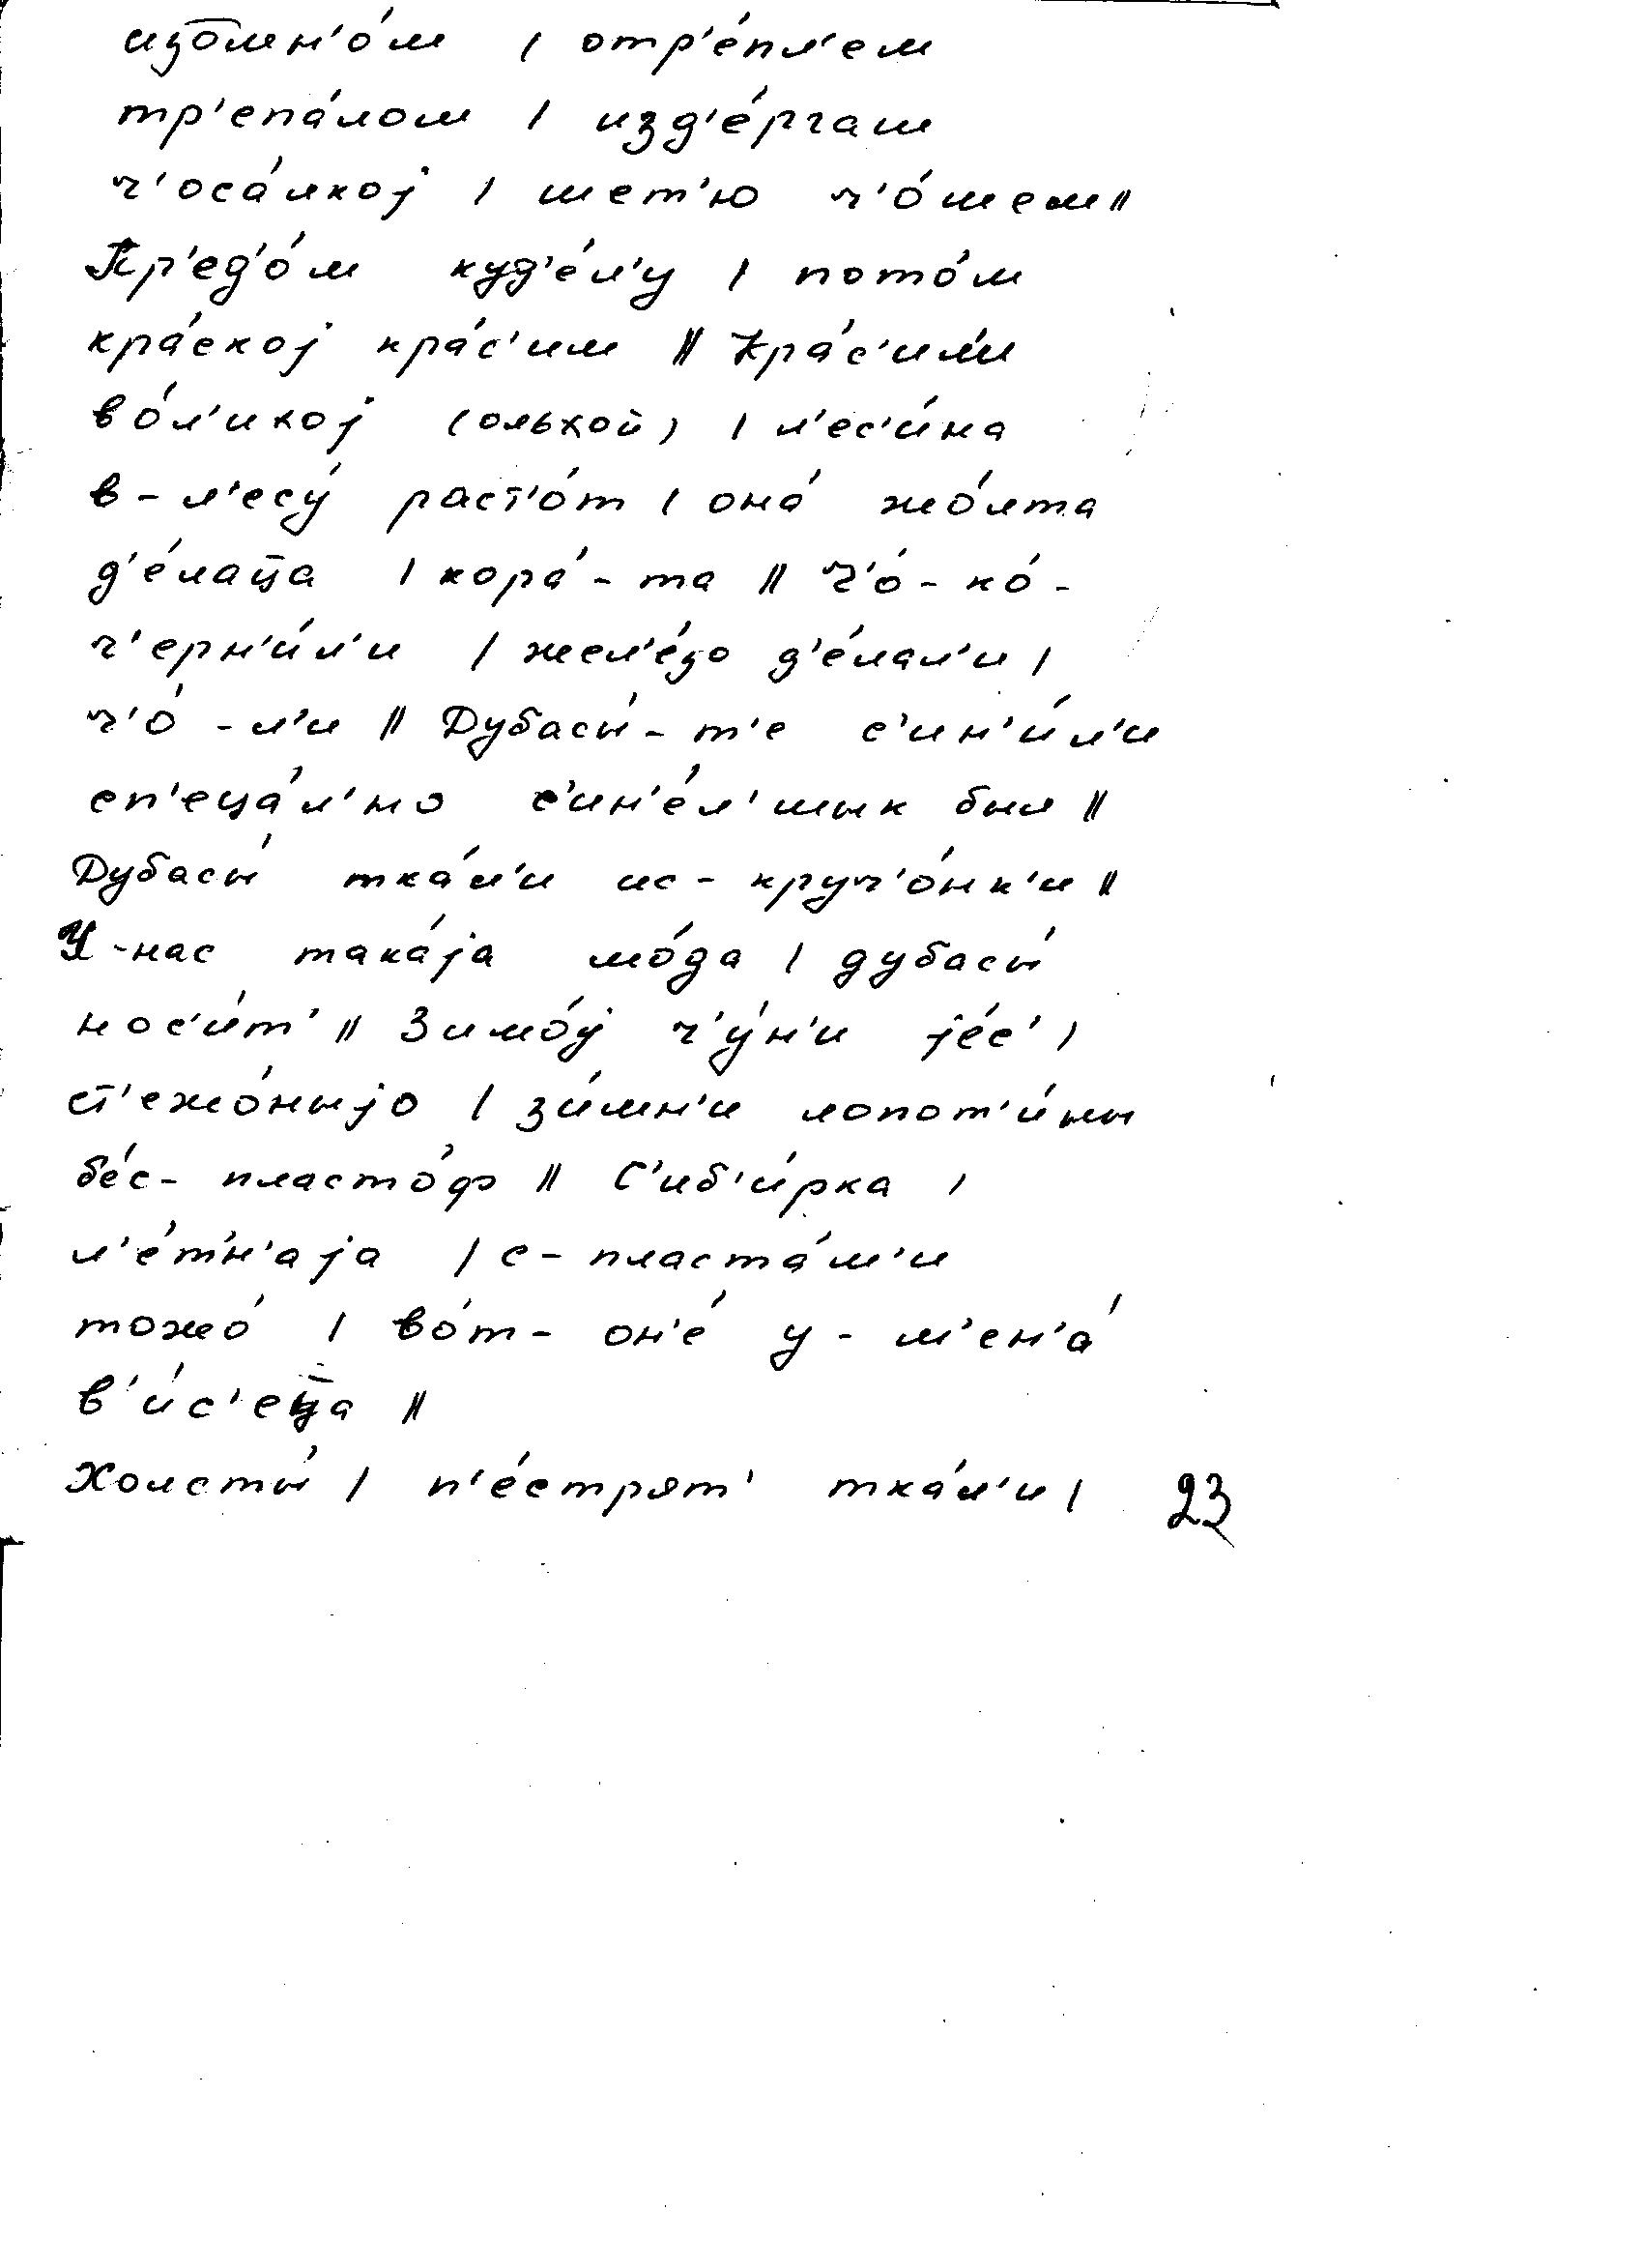 изомн'о́м | отр'е́пл'ем
тр'епа́лом | изд'е́ргаш
ч'оса́лкој | шет'ю ч'о́шем ||
Пр'ед'о́м куд'е́л'у | пото́м
кра́ской кра́с'им || Кра́с'ил'и
во́л'икој (ольхой) | л'ес'и́на
в-л'есу́ раст'о́т | она́ жо́лта
д'е́лаца̅ | кора́-та || Ч'о́-ко́-
ч'ерн'и́л'и | жел'е́зо д'е́лал'и |
ч'о́-л'и || Дубасы́-т'е с'ин'и́л'и
сп'еца́л'но с'ин'е́л'шык был ||
Дубасы́ тка́л'и ис-круч'о́нк'и ||
У-нас така́ја мо́да | дубасы́
нос'и́т' || Зимо́ј ч'у́н'и је́с' |
ст'ежо́ныјо | зи́мн'и лопот'и́ны
бе́с-пласто́ф || С'иб'и́рка |
л'е́т'н'аја | с-пласта́м'и
тожо́ | во́т-он'е́ у-м'ен'а́
в'и́с'еца̅ ||
Холсты́ | п'е́стрят' тка́л'и | 23